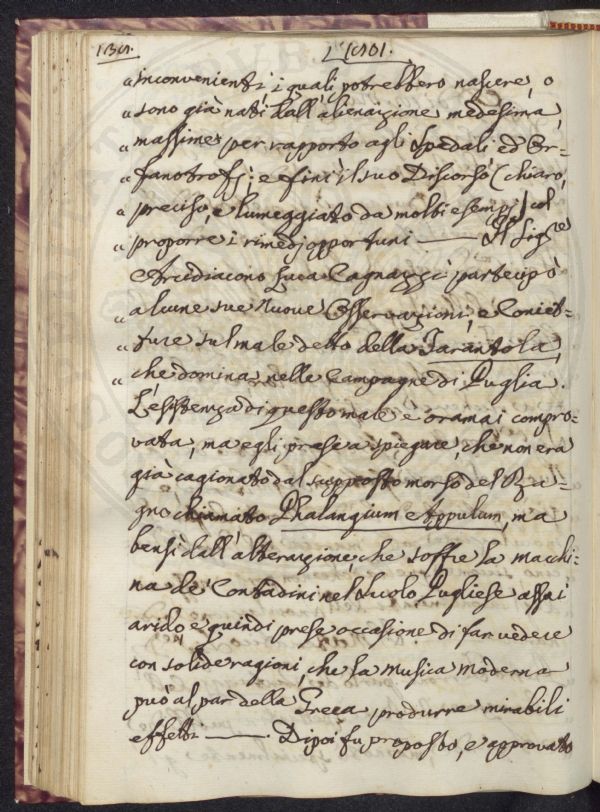 „ inconvenienti, i quali potrebbero nascere, o
„ sono già nati dall'alienazione medesima,
„ massime per rapporto agli Spedali ed Or=
„ fanotrofj; e finì il suo Discorso (chiaro,
„ preciso, e lumeggiato da molti esempj) col
„ proporre i rimedj opportuni —— Il Sigre
Arcidiacono Luca Cagnazzi partecipò
„ alcune sue nuove Osservazioni, e Coniet=
„ ture sul male detto della Tarantola,
„ che domina nelle Campagne di Puglia.
L'esistenza di questo male è oramai compro=
vata, ma egli prese a spiegare, che non era
già cagionato dal supposto morso del Ra=
gno chiamato Phalangium Appulum, ma
bensì dall'alterazione, che soffre la macchi=
na de' Contadini nel Suolo Pugliese assai
arido e quindi prese occasione di far vedere
con solide ragioni, che la Musica Moderna
può al par della Greca produrre mirabili
effetti —— Dipoi fu proposto, e approvato